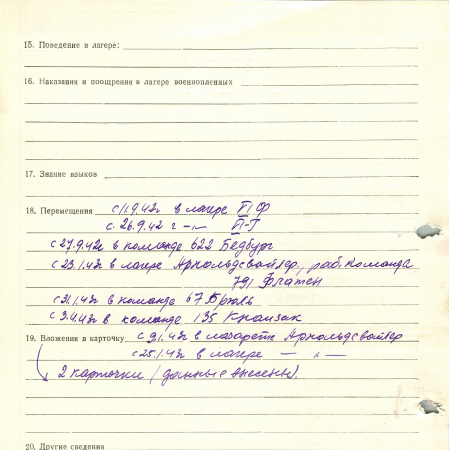 15. Поведение в лагере:
16. Наказания и поощрения в лагере военнопленных
17. Знание языков
18. Перемещения с 11.9.42г в лагере VI Ф
с. 26.9.42 г -"- VI-Г
с 27.9.42г в команде 622 Бедбург
с 23.1.43г в лагере Арнольдсвайлер, раб. команда
791 Флатен
с 31.1.43г в команде 67 Брюль
с 3.4.43г в команде 135 Кранзак
19. Вложения в карточку с 9.1.43г в лазарете Арнольдсвайлер
с 25.1.43г в лагере — " —
2 карточки (данные внесены).
20. Другие сведения